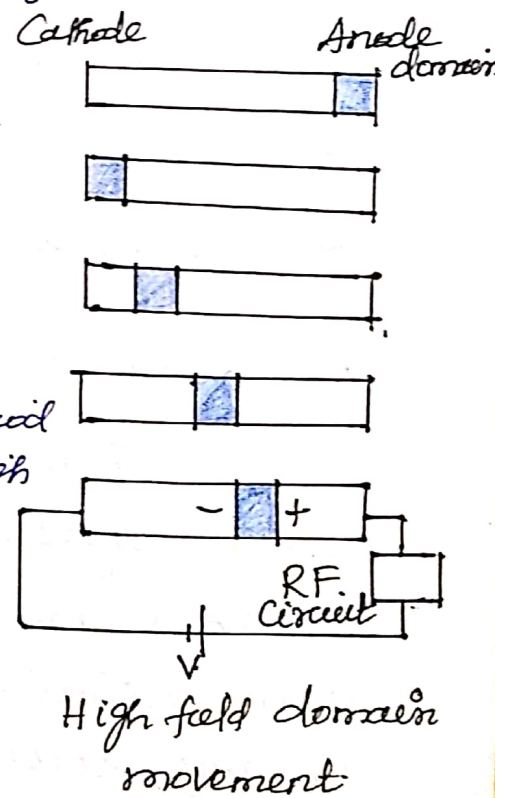 Cathode
Anode
domain
- +
RF
Circuit
V
High field domain
movement